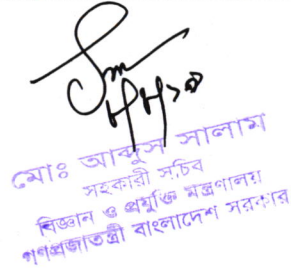 মোঃ আব্দুস সালাম
সহকারী সচিব
বিজ্ঞান ও প্রযুক্তি মন্ত্রণালয়
গণপ্রজাতন্ত্রী বাংলাদেশ সরকার